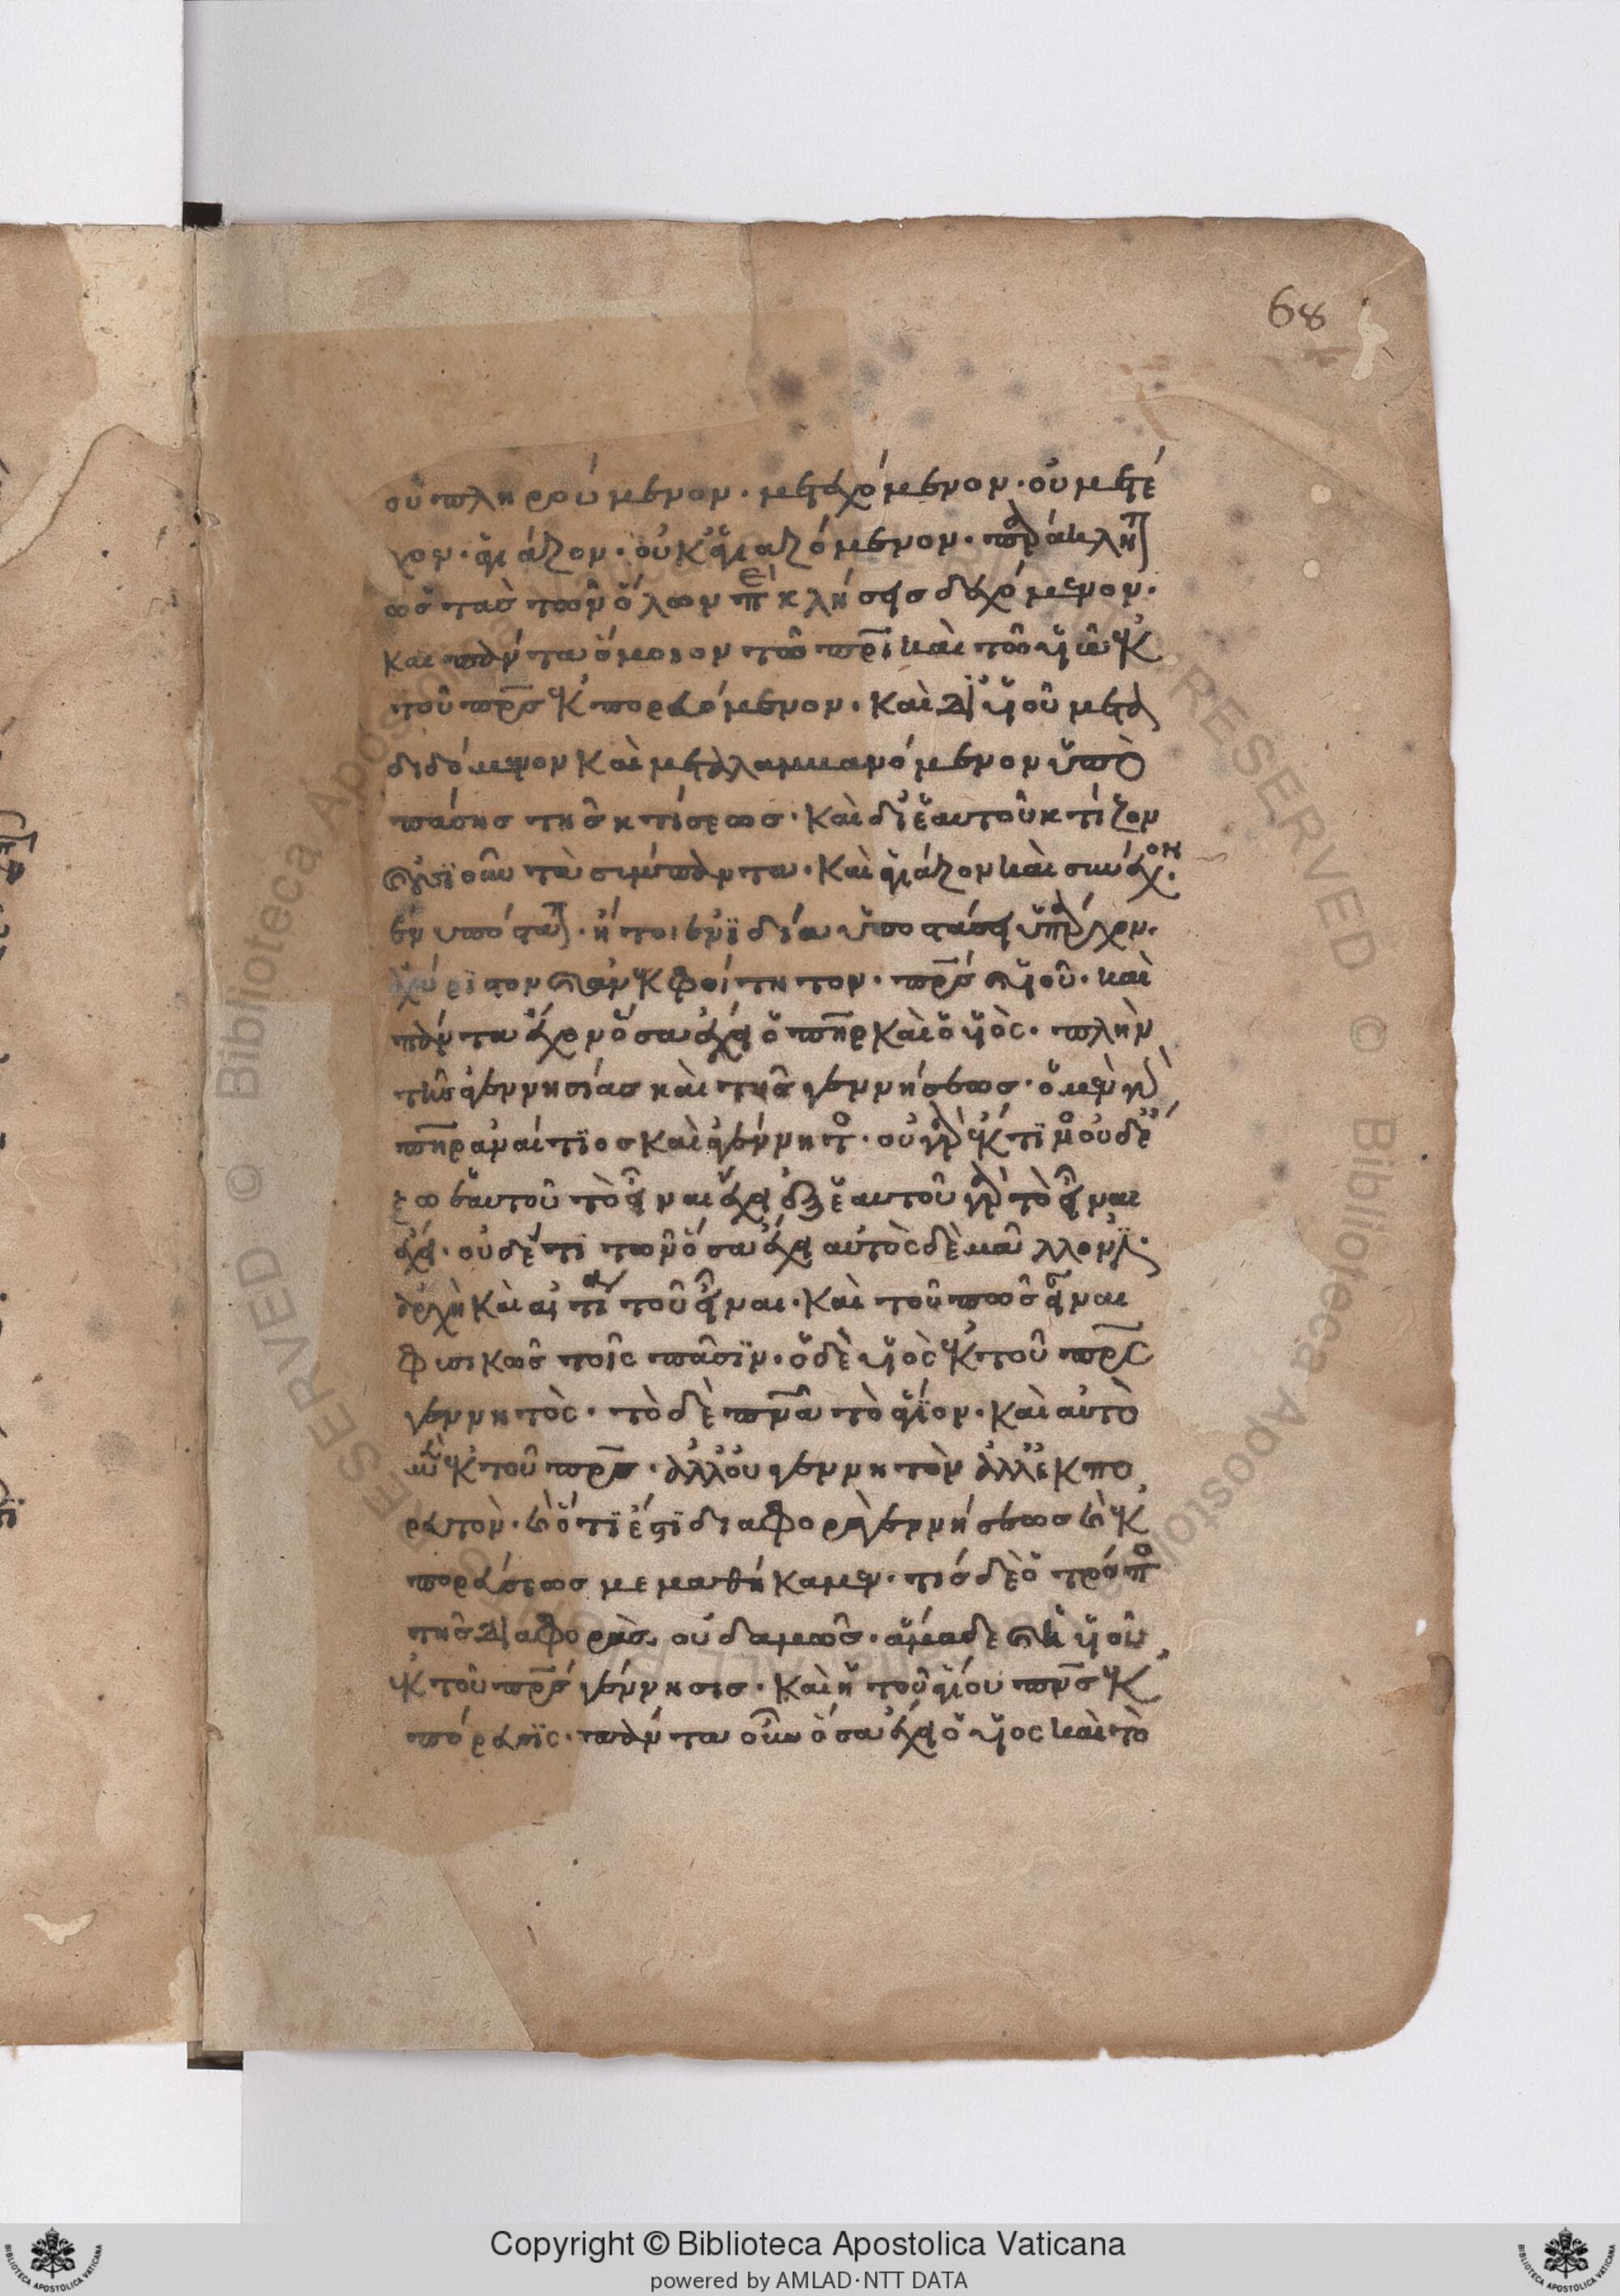 68
οὐ πληρούμενον· μετεχόμενον· οὐ μετέ
χον· ἁγιάζον· οὐκ ἁγιαζόμενον· παράκλητ
ὡς τὰς τῶν ὅλων παρακλήσεις δεχόμενον·
καὶ πάντα ὅμοιον τῶ πρὶ καὶ τῶ υἱῶ ἐκ
τοῦ πρς ἐκπορευόμενον· καὶ δι' υἱοῦ μετα
διδόμενον καὶ μεταλαμβανόμενον ὑπὸ
πάσης τῆς κτίσεως· καὶ δι' ἑαυτοῦ κτίζον
καὶ οὐσιοῦν τὰ σύμπαντα· καὶ ἁγιάζον καὶ συνέχον
ἐνυπόστατ· ἤτοι ἐν ἰδία ὑποστάσει ὑπάρχον·
ἀχώριστον καὶ ἀνεκφοίτητον· πρς καὶ υἱοῦ· καὶ
πάντα ἔχον ὅσα ἔχει ὁ πηρ καὶ ὁ υἱὸς· πλὴν
τῆς ἀγεννησίας καὶ τῆς γεννήσεως· ὁ μὲν γὰρ
πηρ ἀναίτιος καὶ ἀγέννητος· οὐ γὰρ ἔκ τινος οὐδὲ
ἐξ ἑαυτοῦ τὸ εἶναι ἔχει ἐξ ἑαυτοῦ γὰρ τὸ εἶναι
ἔχει· οὐδέ τι τῶν ὅσα ἔχει αὐτὸς δὲ μᾶλλον ἐστιν
ἀρχὴ καὶ αἰτία τοῦ εἶναι· καὶ τοῦ πῶς εἶναι
φυσικῶς τοῖς πᾶσιν· ὁ δὲ υἱὸς ἐκ τοῦ πρς
γεννητὸς· τὸ δὲ πνα τὸ ἅγιον· καὶ αὐτὸ
μὲν ἐκ τοῦ πρς· ἀλλ' οὐ γεννητὸν ἀλλ' ἐκπο
ρευτὸν· καὶ ὅτι ἔστι διαφορὰ γεννήσεως καὶ ἐκ
πορεύσεως μεμαθήκαμεν· τίς δὲ ὁ τρόπος
τῆς διαφορὰς οὐδαμῶς· ἅμα δὲ καὶ ἡ υἱοῦ
ἐκ τοῦ πρς γέννησις· καὶ ἡ τοῦ ἁγίου πνς ἐκ
πόρευσις· πάντα οὖν ὅσα ἔχει ὁ υἱος καὶ τὸ
Copyright © Biblioteca Apostolica Vaticana
powered by AMLAD·NTT DATA